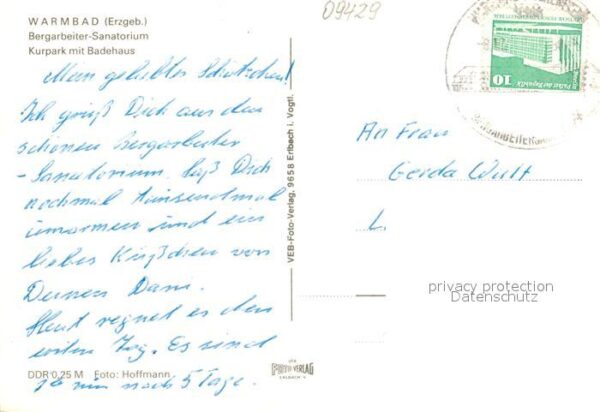 WARMBAD (Erzgeb.)
Bergarbeiter-Sanatorium
Kurpark mit Badehaus
09429
10
Palast der Republik
Mein geliebtes Schätzchen!
Ich grüß Dich aus dem
schönen Bergarbeiter
-Sanatorium. Laß Dich
nochmal tausendmal
umarmen und ein
liebes Küßchen von
Deinem Dani.
Heut regnet es den
ersten Tag. Es sind
ja nur noch 5 Tage.
DDR 0,25 M Foto: Hoffmann
VEB-Foto-Verlag, 9658 Erlbach i. Vogtl.
VEB
FOTO-VERLAG
ERLBACH V.
An Frau
Gerda Wulf
L.
privacy protection
Datenschutz